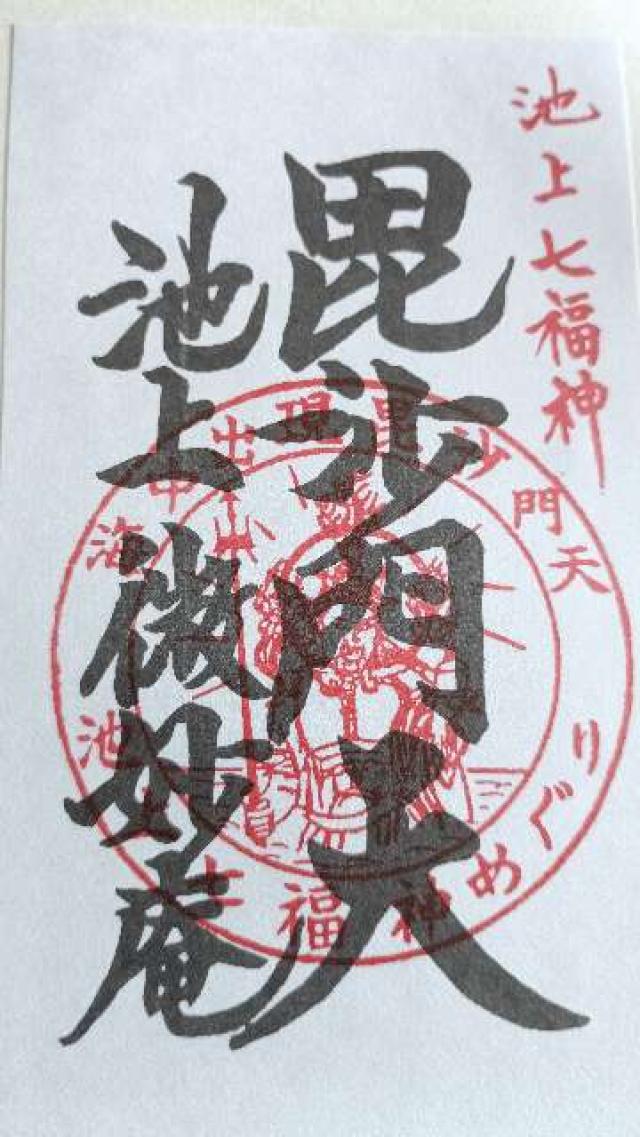 池上七福神
毘沙門天
池上微妙庵
海中出現毘沙門天
池上七福神めぐり